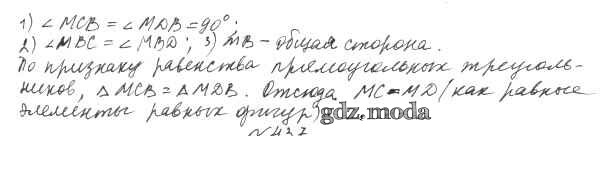 1) ∠MCB = ∠MDB = 90°;
2) ∠MBC = ∠MBD; 3) MB - общая сторона.
По признаку равенства прямоугольных треуголь-
ников, △MCB = △MDB. Отсюда MC = MD (как равные
элементы равных фигур). gdz.moda
№ 427